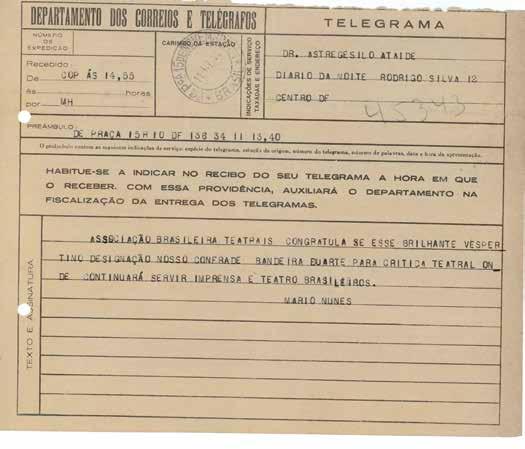 DEPARTAMENTO DOS CORREIOS E TELÉGRAFOS
TELEGRAMA
NÚMERO
DE
EXPEDIÇÃO
CARIMBO DA ESTAÇÃO
INDICAÇÕES DE SERVIÇO
TAXADAS E ENDEREÇO
DR. ASTREGESILO ATAIDE
DIARIO DA NOITE RODRIGO SILVA 12
CENTRO DF
45343
Recebido:
De COP ÁS 14,55
às horas
por MH
BRASIL
PREÂMBULO:
DE PRAÇA 15 R 10 DF 136 34 11 13,40
O preâmbulo contem as seguintes indicações de serviço: espécie do telegrama, estação de origem, número do telegrama, número de palavras, data e hora da apresentação.
HABITUE-SE A INDICAR NO RECIBO DO SEU TELEGRAMA A HORA EM QUE
O RECEBER. COM ESSA PROVIDÊNCIA, AUXILIARÁ O DEPARTAMENTO NA
FISCALIZAÇÃO DA ENTREGA DOS TELEGRAMAS.
TEXTO E ASSINATURA
ASSOCIAÇÃO BRASILEIRA TEATRAIS CONGRATULA SE ESSE BRILHANTE VESPER
TINO DESIGNAÇÃO NOSSO CONFRADE BANDEIRA DUARTE PARA CRITICA TEATRAL ON
DE CONTINUARÁ SERVIR IMPRENSA E TEATRO BRASILEIROS.
MARIO NUNES